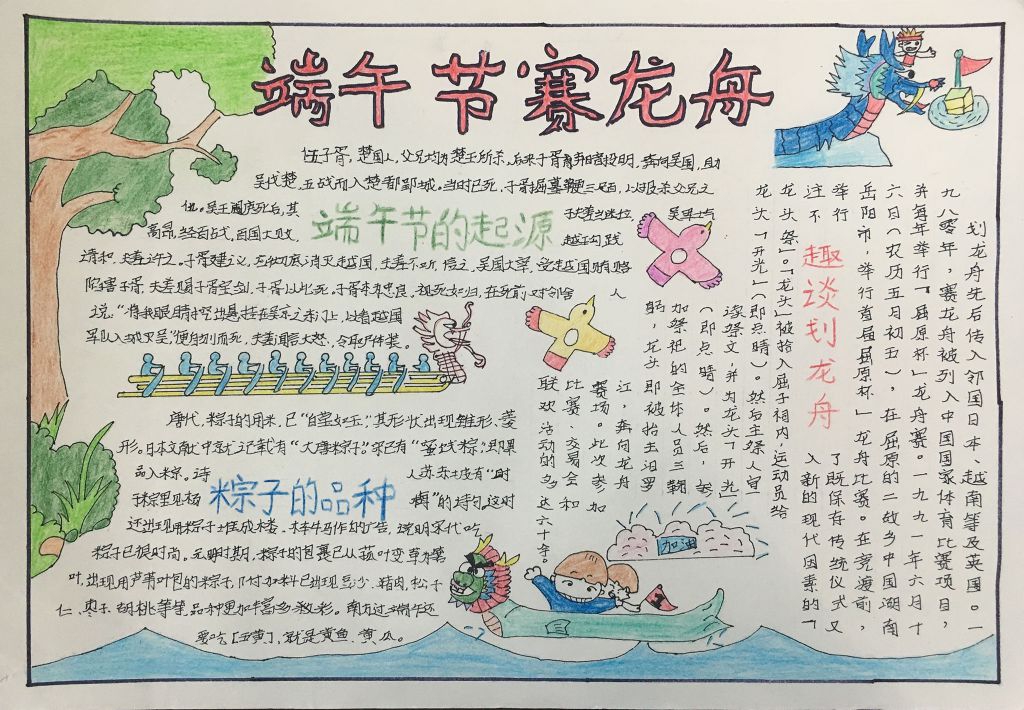 端午节赛龙舟
伍子胥，楚国人，父兄均为楚王所杀，后来子胥奔向吴国，助
吴伐楚，五战而入楚都郢城。当时已死，子胥掘墓鞭三百，以报杀父兄之
仇。吴王阖庐死后，其
高昂，经百战，百国大败，
端午节的起源
越王勾践
请和，夫差许之。子胥建议，应彻底消灭越国，夫差不听，吴国大宰，受越国贿赂
陷害子胥，夫差赐子胥宝剑，子胥以此死。子胥本忠良，视死如归，在死前对邻舍人
说："将我眼睛挖出悬挂在吴京之东门上，以看越国
军队入城灭吴"便自刎而死，夫差闻言大怒，令取
唐代，粽子的用米，已"白莹如玉"，其形状出现锥形、菱
形。日本文献中就记载有"大唐粽子"。宋已有"蜜饯粽"，即果
品入粽。诗人苏东坡有"时
于粽里见杨梅"的诗句。这时
粽子的品种
还出现用粽子堆成楼、木牛马作的广告，说明宋代吃
粽子已很时尚。元明时期，粽子的包裹已从菰叶变革为箬
叶，出现用芦苇叶包的粽子，附加料已出现豆沙、猪肉、松子
仁、枣子、胡桃等等，品种更加丰富多彩。南方过端午还
要吃【五黄】，就是黄鱼、黄瓜。
加油
趣谈划龙舟
划龙舟先后传入邻国日本、越南等及英国。一
九八零年，赛龙舟被列入中国国家体育比赛项目，
并每年举行「屈原杯」龙舟赛。一九九一年六月十
六日（农历五月初五），在屈原的二故乡中国湖南
岳阳市，举行首届屈原杯」龙舟比赛。在竞渡前，
举行了既保存传统仪式又
注入新的现代因素的「
龙头祭」。「龙头」被抬入屈子祠内，运动员给
龙头「开光」（即点睛）。然后主祭人宣
读祭文，并为龙头「开光」
（即点睛）。然后，参
加祭祀的全体人员三鞠
躬，龙头即被抬去汩罗
江，奔向龙舟
赛场。此次参加
比赛、交易会和
联欢活动的多达六十余